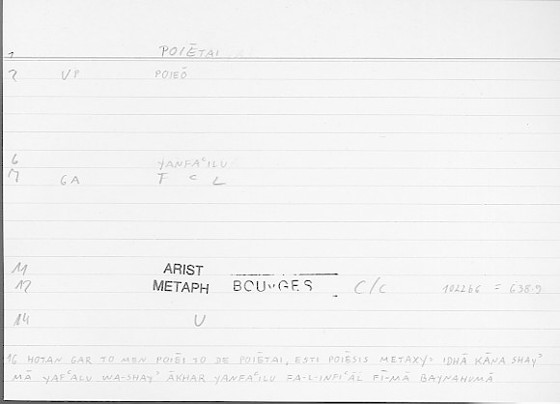 1 POIĒTAI
2 VP POIEŌ
6 YANFAʿILU
7 6A F ʿ L
11 ARIST
12 METAPH BOUYGES C/C 1022b6 = 638.9
14 U
16 HOTAN GAR TO MEN POIĒI TO DE POIĒTAI, ESTI POIĒSIS METAXY: IDHĀ KĀNA SHAYʾ
MĀ YAFʿALU WA-SHAYʾ ĀKHAR YANFAʿILU FA-L-INFIʿĀL FĪ-MĀ BAYNAHUMĀ